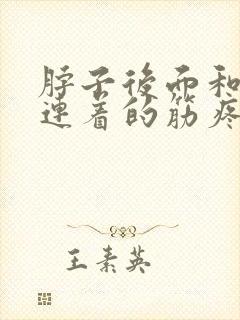 脖子後面和
連着的筋疼
王素英